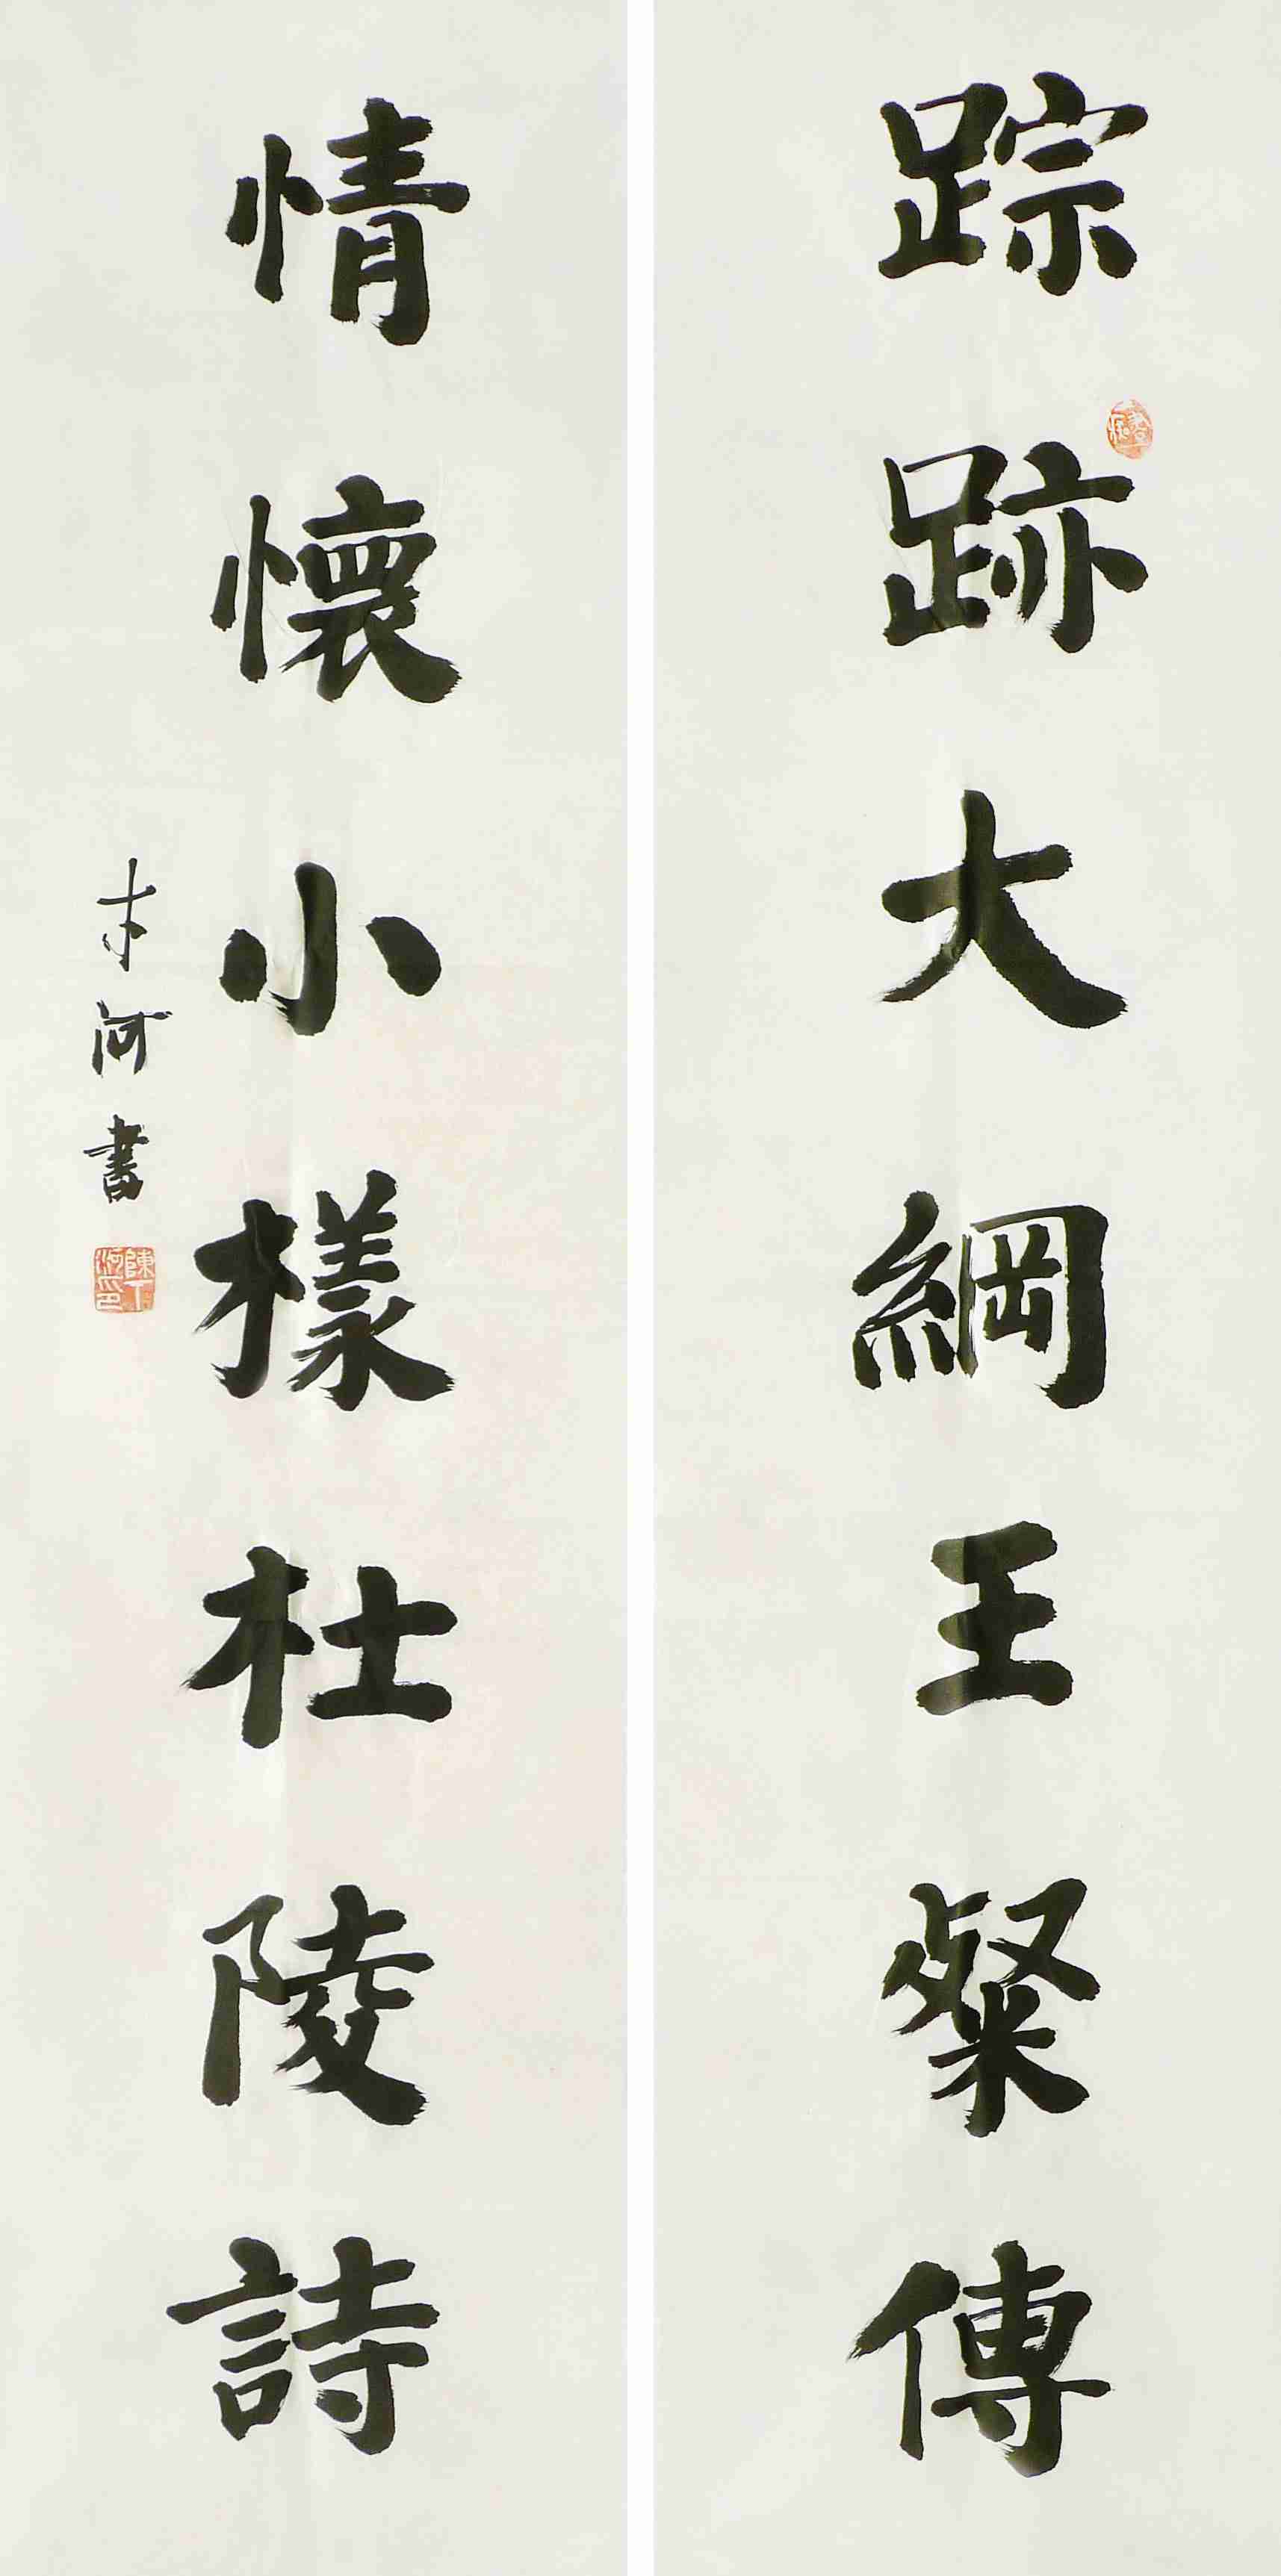 踪跡大綱王粲傳
情懷小樣杜陵詩
河書